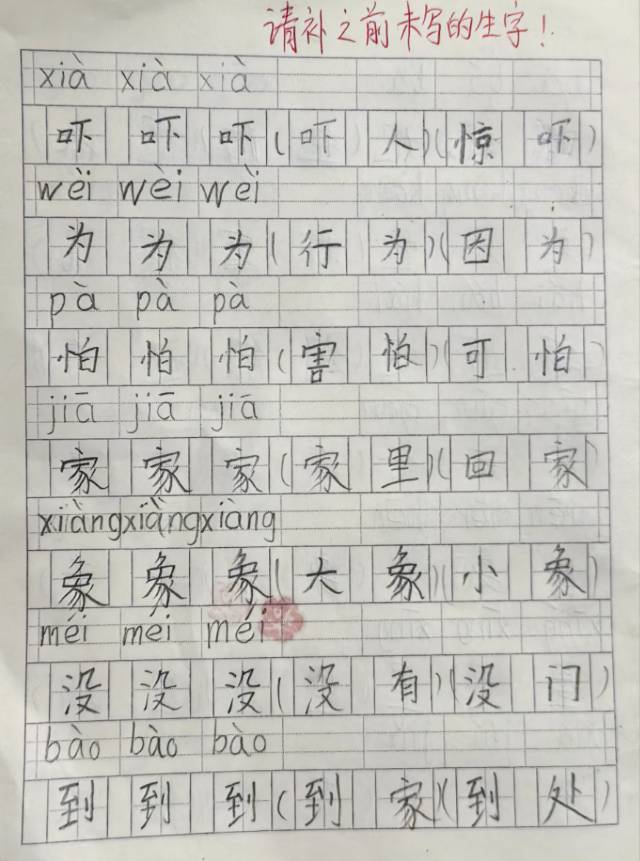 请补之前未写的生字！
xià xià xià
吓 吓 吓 (吓 人)(惊 吓)
wèi wèi wèi
为 为 为 (行 为)(因 为)
pà pà pà
怕 怕 怕 (害 怕)(可 怕)
jiā jiā jiā
家 家 家 (家 里)(回 家)
xiàng xiàng xiàng
象 象 象 (大 象)(小 象)
méi méi méi
没 没 没 (没 有)(没 门)
bào bào bào
到 到 到 (到 家)(到 处)